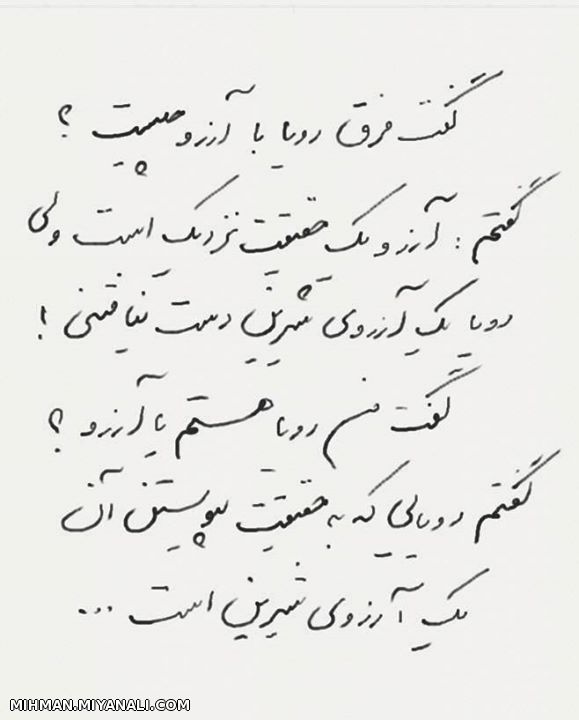 گفت فرق رویا با آرزو چیست ؟
گفتم : آرزو یک حقیقت نزدیک است ولی
رویا یک آرزوی شیرین دست نیافتنی !
گفت من رویا هستم یا آرزو ؟
گفتم رویایی که به حقیقت پیوستن آن
یک آرزوی شیرین است ...
MIHMAN.MIYANALI.COM